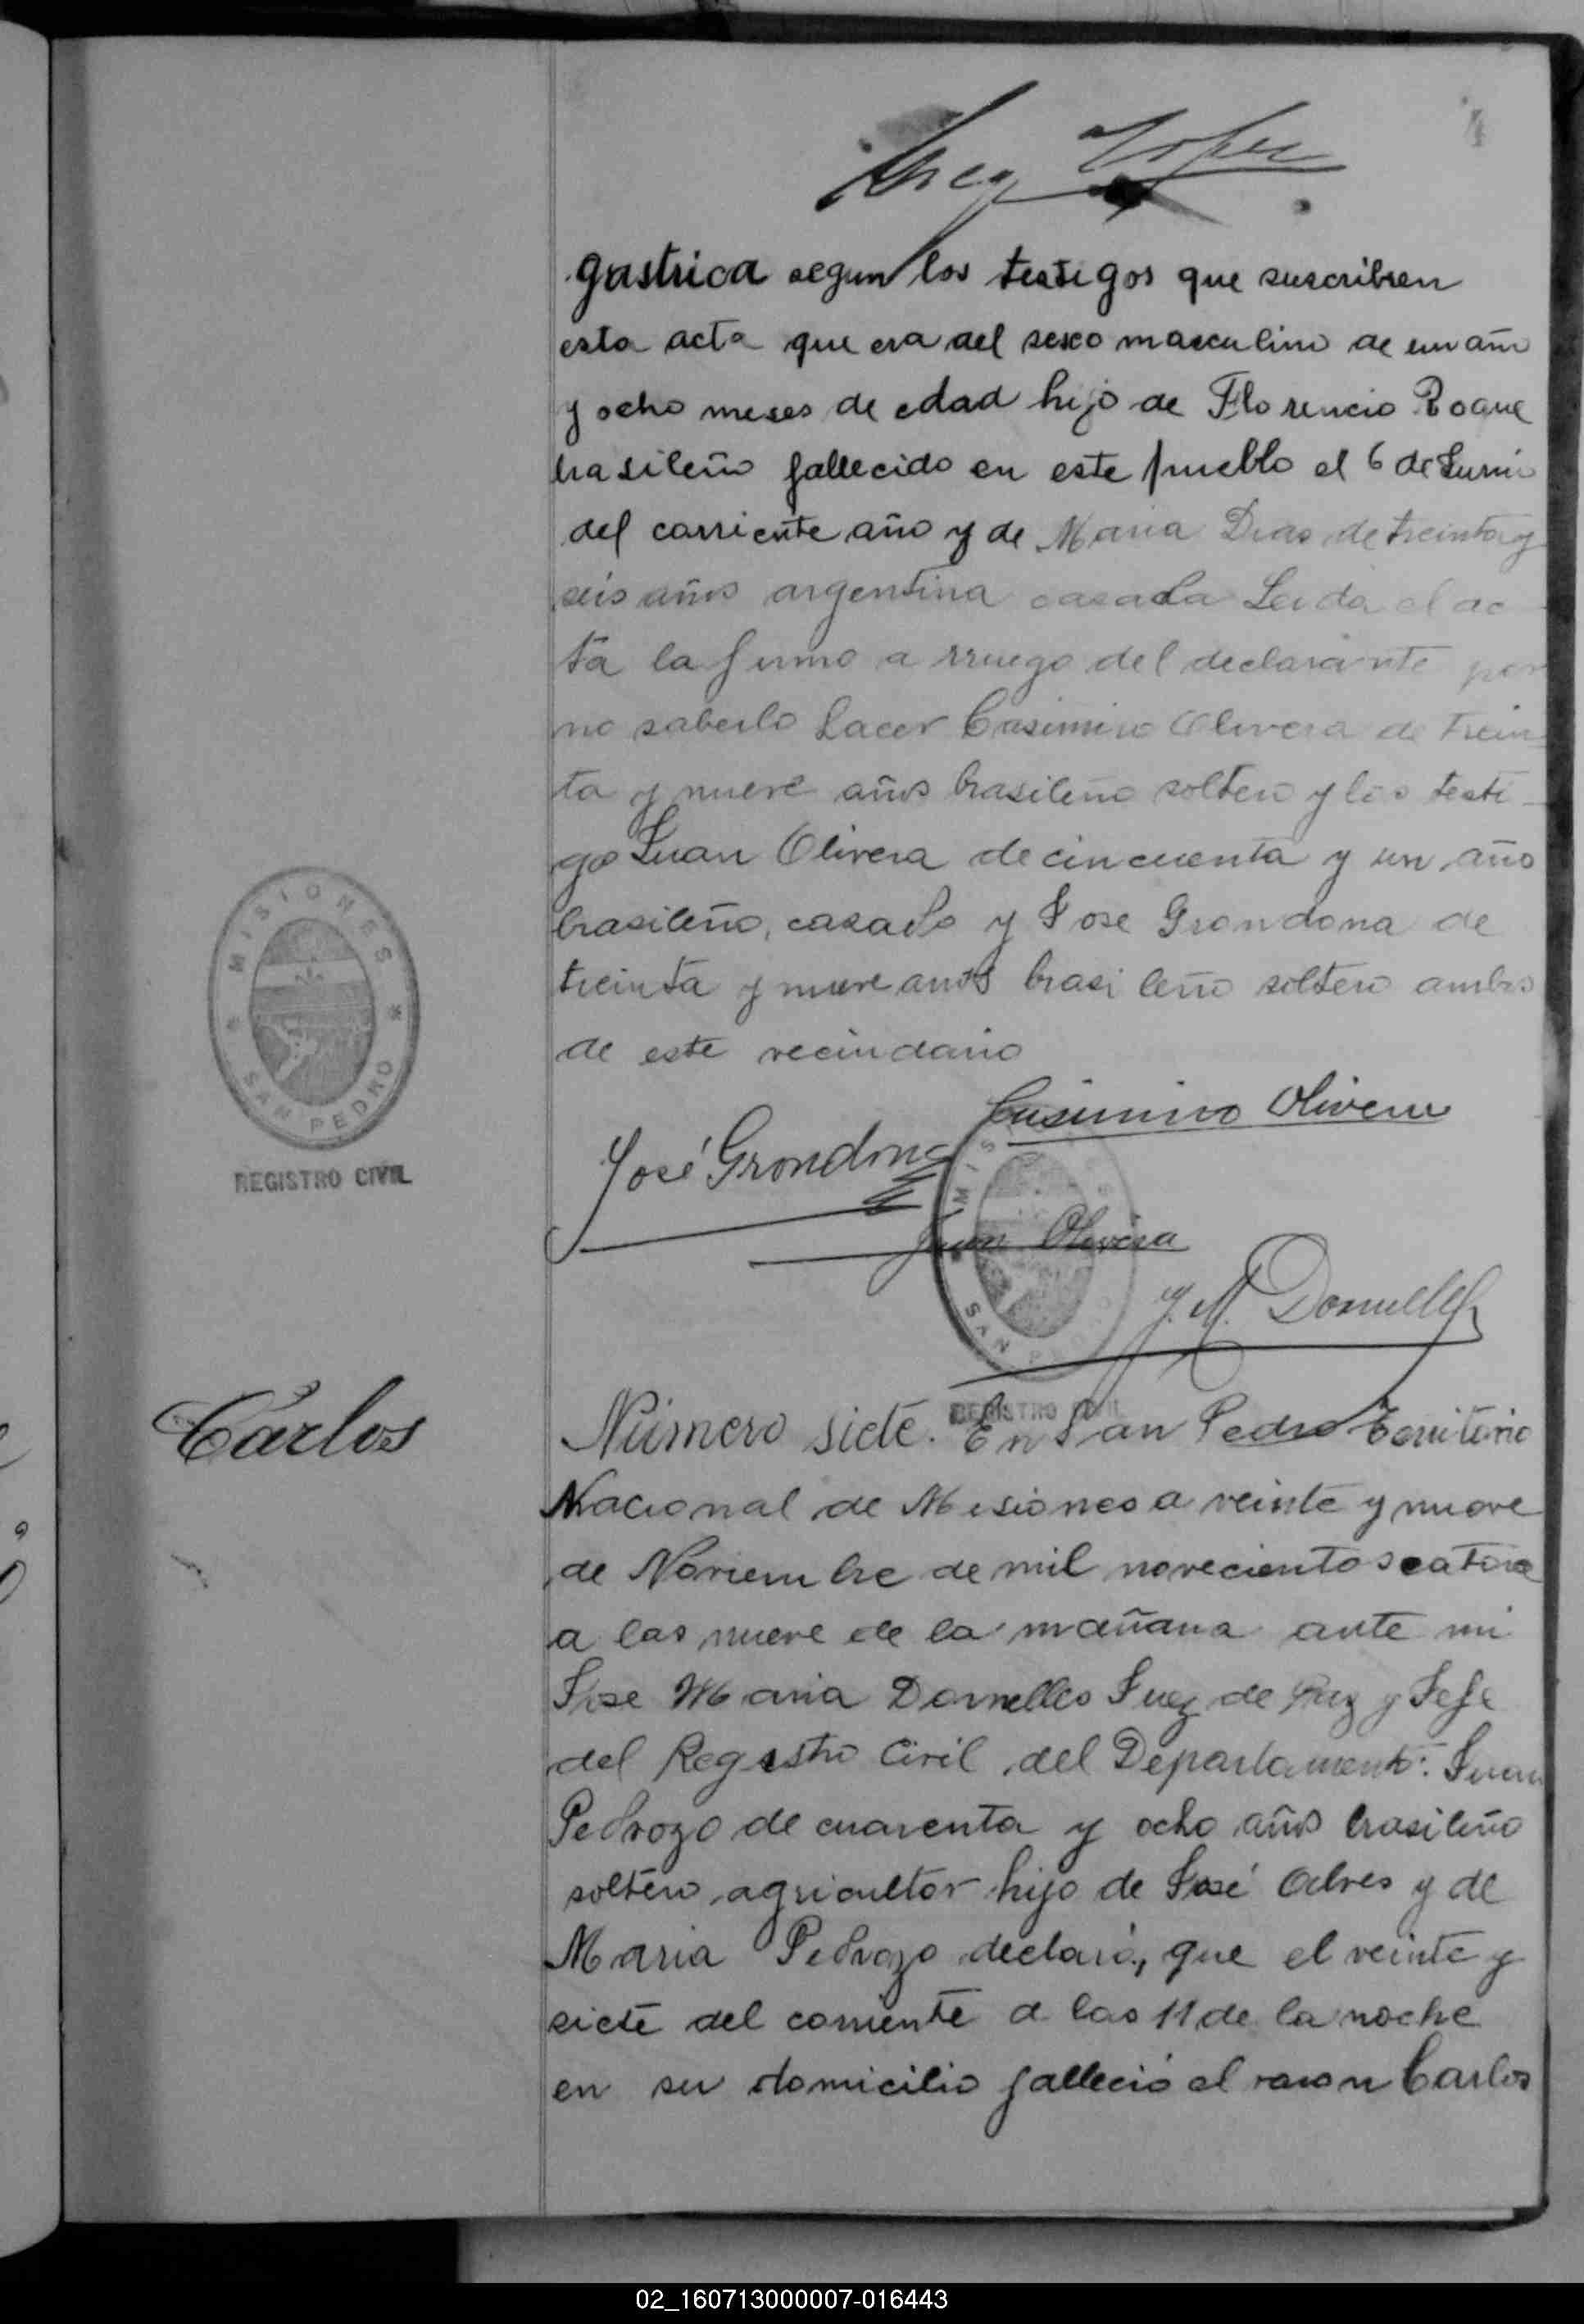 4
gastrica segun los testigos que suscriben
esta acta que era del sexo masculino de un año
y ocho meses de edad hijo de Florencio Roque
brasileño fallecido en este pueblo el 6 de Junio
del corriente año y de Maria Dias de treinta y
seis años argentina casada Leida el ac
ta la firmo a rruego del declarante por
no saberlo hacer Casimiro Olivera de trein
ta y nueve años brasileño soltero y los testi-
go Juan Olivera de cincuenta y un año
brasileño, casado y Jose Grondona de
treinta y nueve años brasileño soltero ambos
de este vecindario
Casimiro Olivera
José Grondona
Juan Olivera
J. M. Dornelles
MISIONES
SAN PEDRO
REGISTRO CIVIL
MIS
SAN PEDRO
REGISTRO CIVIL
Carlos
Número siete. En San Pedro Territorio
Nacional de Misiones a veinte y nueve
de Noviembre de mil novecientos catorce
a las nueve de la mañana ante mi
Jose Maria Dornelles Juez de Paz y Jefe
del Registro Civil del Departamento: Juan
Pedrozo de cuarenta y ocho años brasileño
soltero agricultor hijo de José Alves y de
Maria Pedrozo declaró, que el veinte y
siete del corriente a las 11 de la noche
en su domicilio falleció el varon Carlos
02_160713000007-016443